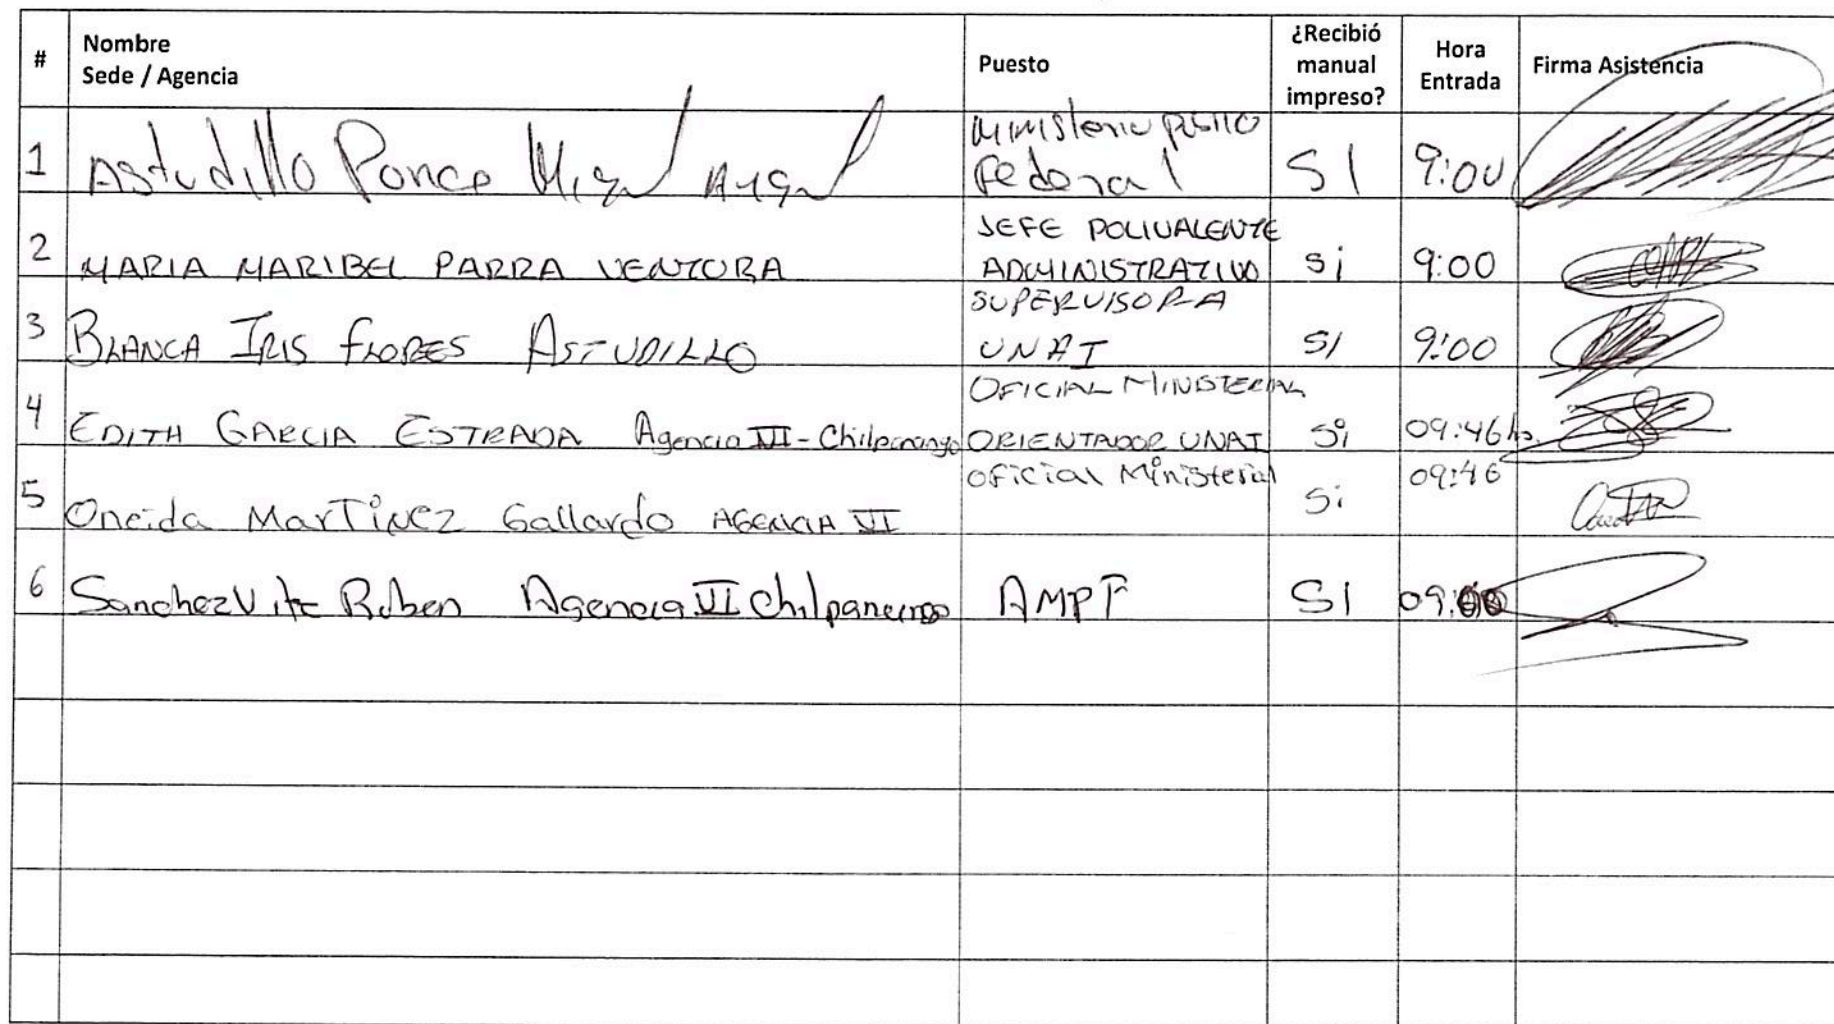 # Nombre Sede / Agencia Puesto ¿Recibió manual impreso? Hora Entrada Firma Asistencia
1 Astudillo Ponce Miguel Angel Ministerio publico Federal SI 9:00
2 MARIA MARIBEL PARRA VENTURA JEFE POLIVALENTE ADMINISTRATIVO si 9:00
3 BLANCA IRIS FLORES ASTUDILLO SUPERVISORA UNAI SI 9:00
4 EDITH GARCIA ESTRADA Agencia VII - Chilpancingo OFICIAL MINISTERIAL ORIENTADOR UNAI si 09:46 hs.
5 Oneida MarTiNez Gallardo AGENCIA VI OFicial Ministerial Si 09:46
6 Sanchez Vite Ruben Agencia VI Chilpancingo AMPF SI 09:00